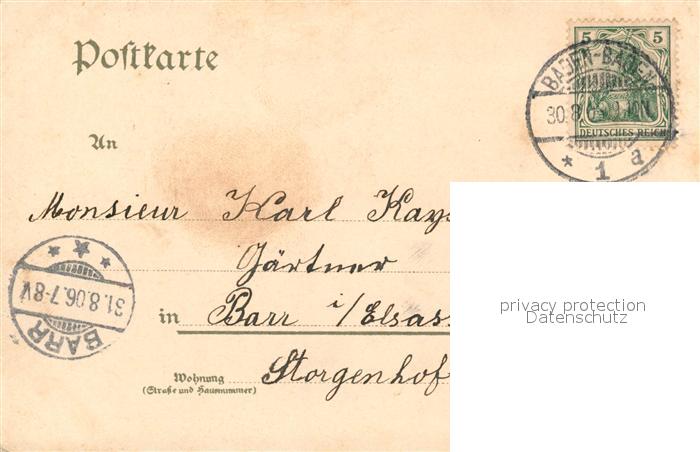 Postkarte
5 5
DEUTSCHES REICH
BADEN-BADEN
30.8
* 1 a
An
Monsieur Karl Kays
Gärtner
in Barr i/Elsass
Wohnung Storgenhof
(Straße und Hausnummer)
31.8.06.7-8V.
BARR
privacy protection
Datenschutz